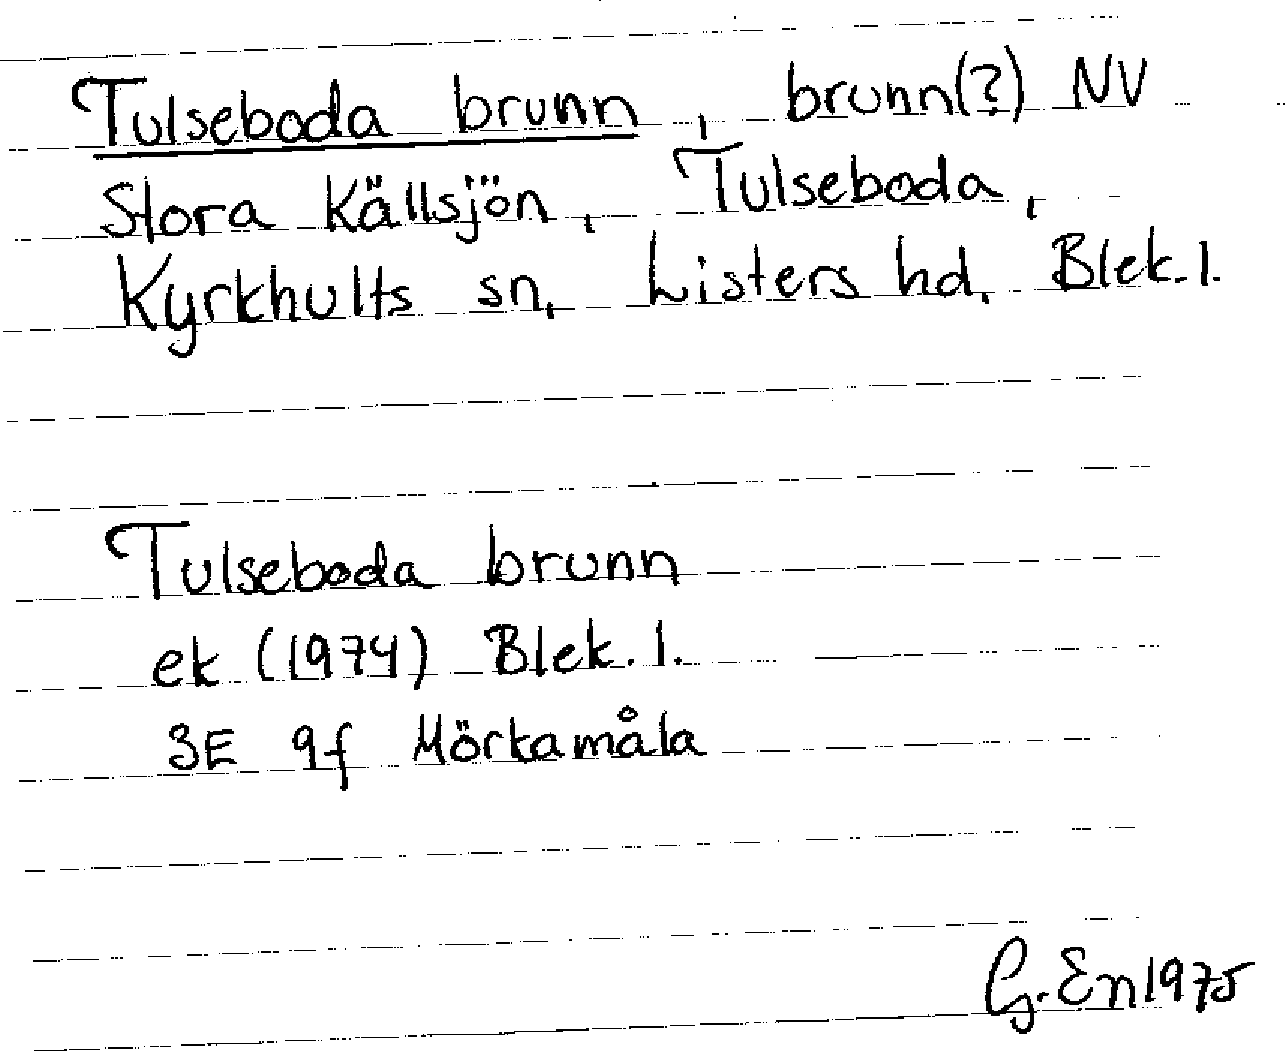 Tulseboda brunn, brunn(?) NV
Stora Källsjön, Tulseboda,
Kyrkhults sn, Listers hd, Blek. l.
Tulseboda brunn
ek (1974) Blek. l.
3E 9f Mörkamåla
G. En 1975